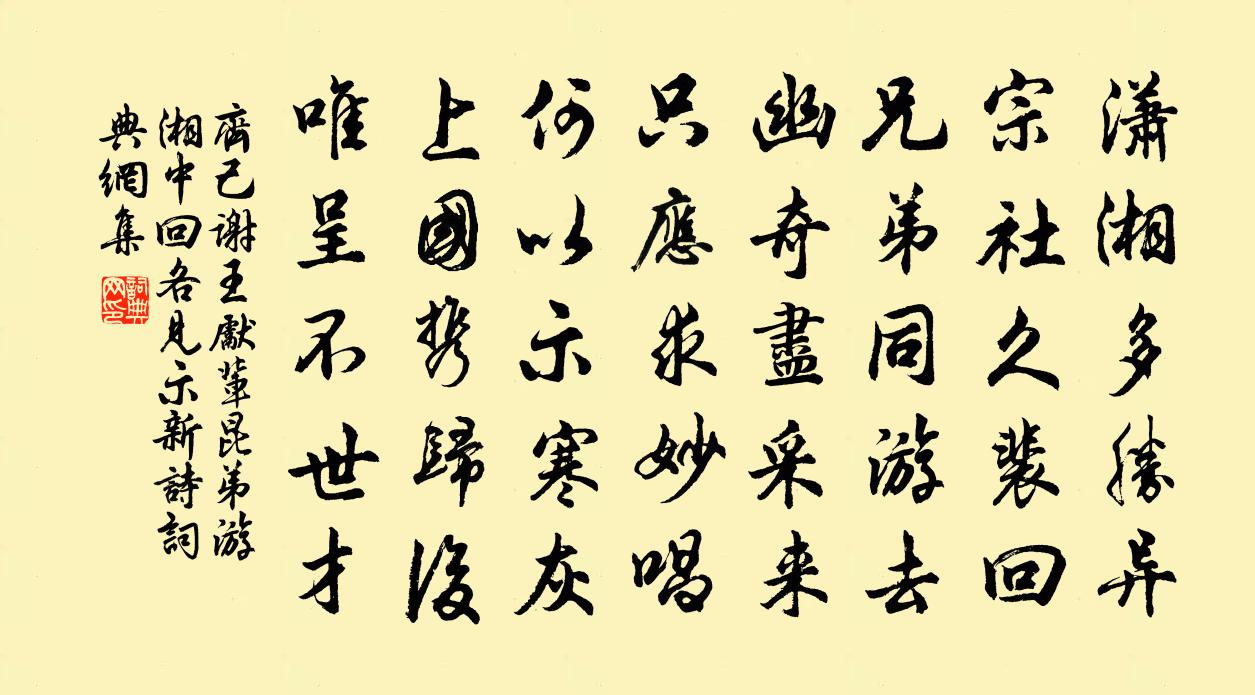 瀟湘多勝异
宗社久裴回
兄弟同游去
幽奇盡采来
只應求妙唱
何以示寒灰
上國携歸後
唯呈不世才
齊己謝王獻輩昆弟游
湘中回各見示新詩詞
典網集
詞典
网印